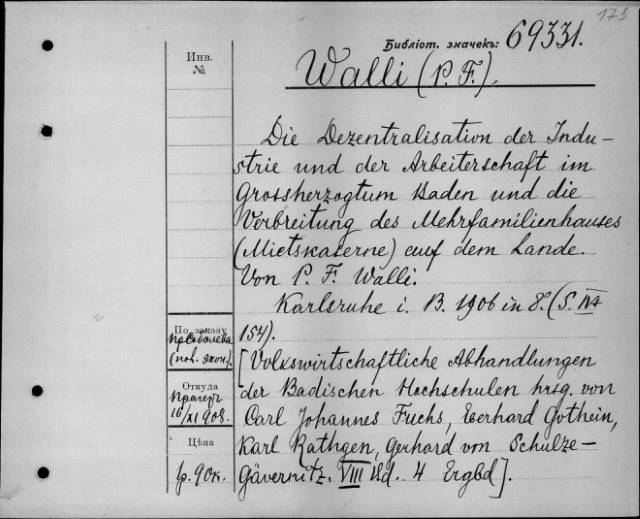 173
Библіот. значекъ: 69331.
Инв.
№
Walli (P. F.).
Die Dezentralisation der Indu-
strie und der Arbeiterschaft im
Grossherzogtum Baden und die
Verbreitung des Mehrfamilienhauses
(Mietskaserne) auf dem Lande.
Von P. F. Walli.
Karlsruhe i. B. 1906 in 8. (S. IV+
154).
[Volkswirtschaftliche Abhandlungen
der Badischen Hochschulen hrsg. von
Carl Johannes Fuchs, Eberhard Gothein,
Karl Rathgen, Gerhard von Schulze-
Gävernitz. VIII Bd. 4 Ergbd].
По заказу
пр Соболева
(пов. экон).
Откуда
Прагеръ
10/XI 908.
Цѣна
р. 90к.